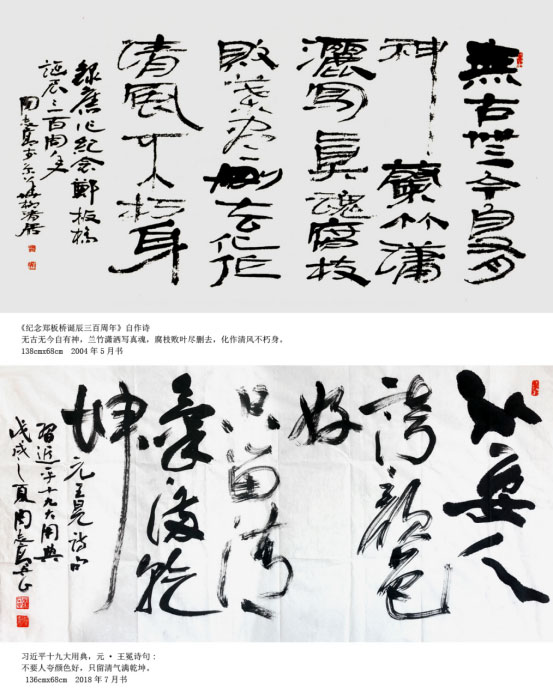 無古無今自有
神蘭竹瀟
灑寫真魂腐枝
敗葉尽刪去化作
清風不朽身
錄舊作紀念鄭板橋
誕辰三百周年
周志高書於京華
《纪念郑板桥诞辰三百周年》自作诗
无古无今自有神，兰竹潇洒写真魂，腐枝败叶尽删去，化作清风不朽身。
138cmx68cm 2004年5月书
不要人
誇顏色
好
只留清
氣滿乾
坤
元王冕詩句
習近平十九大用典
戊戌之夏周志高書
习近平十九大用典，元·王冕诗句：
不要人夸颜色好，只留清气满乾坤。
136cmx68cm 2018年7月书